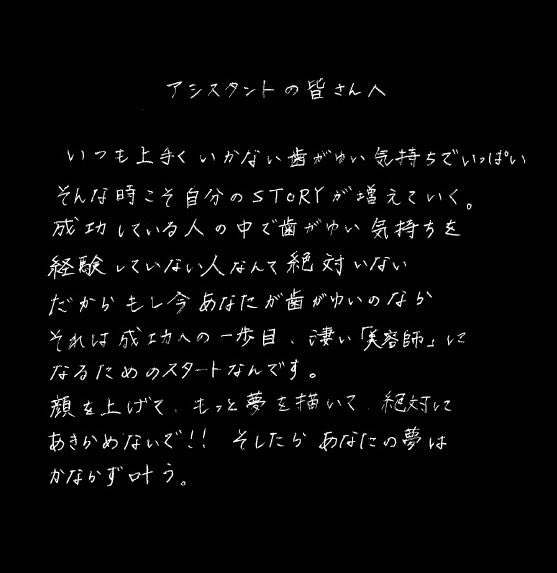 アシスタントの皆さんへ
いつも上手くいかない歯がゆい気持ちでいっぱい
そんな時こそ自分のSTORYが増えていく。
成功している人の中で歯がゆい気持ちを
経験していない人なんて絶対いない
だからもし今あなたが歯がゆいのなら
それは成功への一歩目、凄い「美容師」に
なるためのスタートなんです。
顔を上げて、もっと夢を描いて、絶対に
あきらめないで!! そしたらあなたの夢は
かならず叶う。